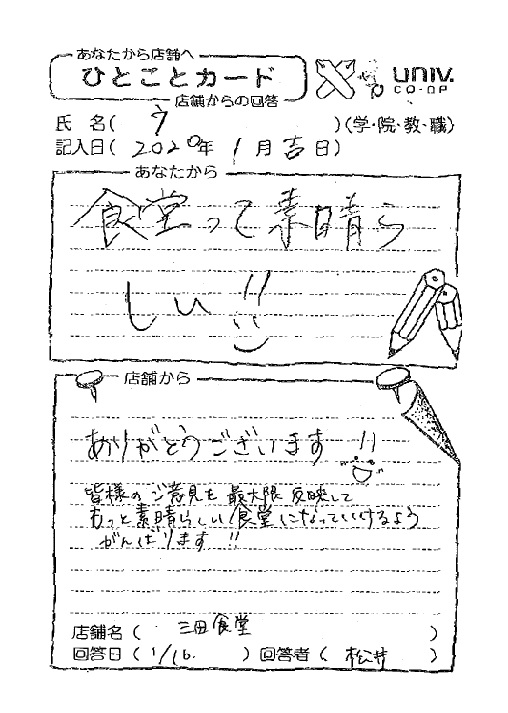 あなたから店舗へ
ひとことカード
店舗からの回答
UNIV.
CO-OP
氏 名( ) (学・院・教・職)
記入日( 2020年 1月吉日)
あなたから
食堂って素晴ら
しい!!
店舗から
ありがとうございます!!
皆様のご意見を最大限反映して
もっと素晴らしい食堂になっていけるよう
がんばります!!
店舗名( 三田食堂 )
回答日( 1/16. ) 回答者( 松井 )